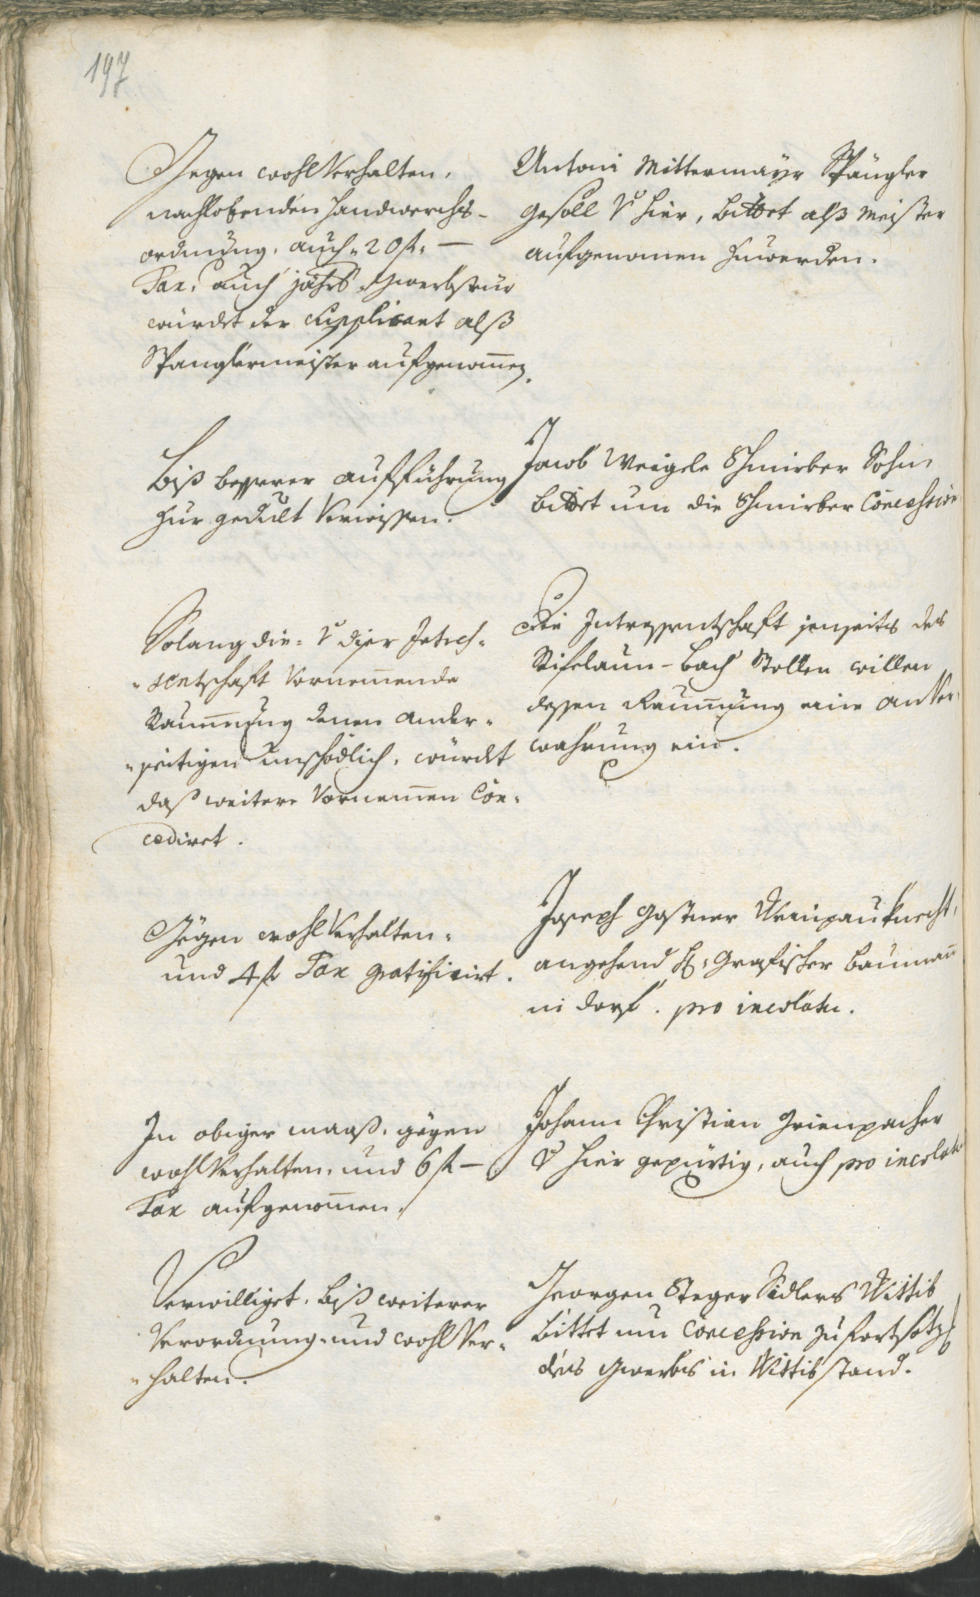 197
Gegen wohl Verhalten,
nachlobenden Handwerchs-
ordnung, auch 20 f. —
Tax, auch jährl. Gwerbsteur
würdt der Supplicant alß
Spanglermeister aufgenomen.
Antoni Mittermayr Spängler
Gesöll v. hier, bittet alß Meister
aufgenomen zuwerden.
Biß besserer aufführung
zur gedult verwissen.
Jacob Weigele Schmirber Sohn
bittet um die Schmirber Concession
Solang die: v. diser Intres-
sentschaft Vornemende
Raumung denen ander-
seitigen unschödlich, würdt
daß weitere Vornemen Con-
cediret.
Die Intressentschaft jenseits des
Rifelaun-bach Stollen willen
dessen Raumung eine an Ver-
wahrung ein.
Gegen wohl Verhalten
und 4 f Tax gratificirt.
Joseph Gostner Weinpauknecht,
angehend Gräfischer Baumann
in Dorf. pro incolatu.
In obiger maaß, gögen
wohl Verhalten, und 6 f —
Tax aufgenomen.
Johann Christian Grienpacher
v. hier gepürtig, auch pro incolatu
Verwilliget, biß weiterer
Verordnung, und wohl Ver-
halten.
Georgen Steger Sidlers Wittib
bittet um Concession zu fortsötz
des Gwerbs in Wittibstand.